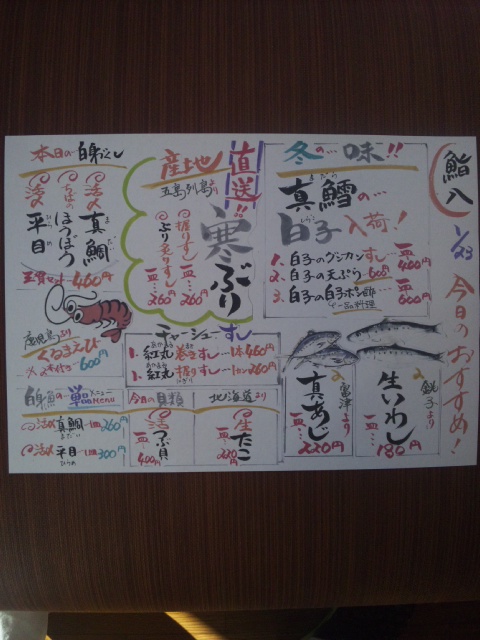 鮨八
1/23
今日のおすすめ!
冬の…味!!
真鱈の…
まだら
白子入荷!
しらこ
1. 白子のグンカンすし 一皿…460円
2. 白子の天ぷら 600円
3. 白子の白子ポン酢 一皿…600円
一品料理
産地
直送!!
五島列島より
寒ぶり
握りすし 一皿…260円
ぶり炙りすし 一皿…260円
本日の白身づくし
活〆
真鯛
ちばの
ほうぼう
活〆
平目
460円
鹿児島より
くるまえび
600円
チャーシューすし
1. 紅丸巻きすし 一本460円
1. 紅丸握りすし 260円
銚子より
生いわし
一皿…180円
富津より
真あじ
一皿…220円
白身魚の…単品メニュー
Menu
活〆真鯛 一皿260円
まだい
活〆平目 一皿300円
ひらめ
今日の貝類
活つぶ貝
一皿…400円
北海道より
生たこ
一皿…220円